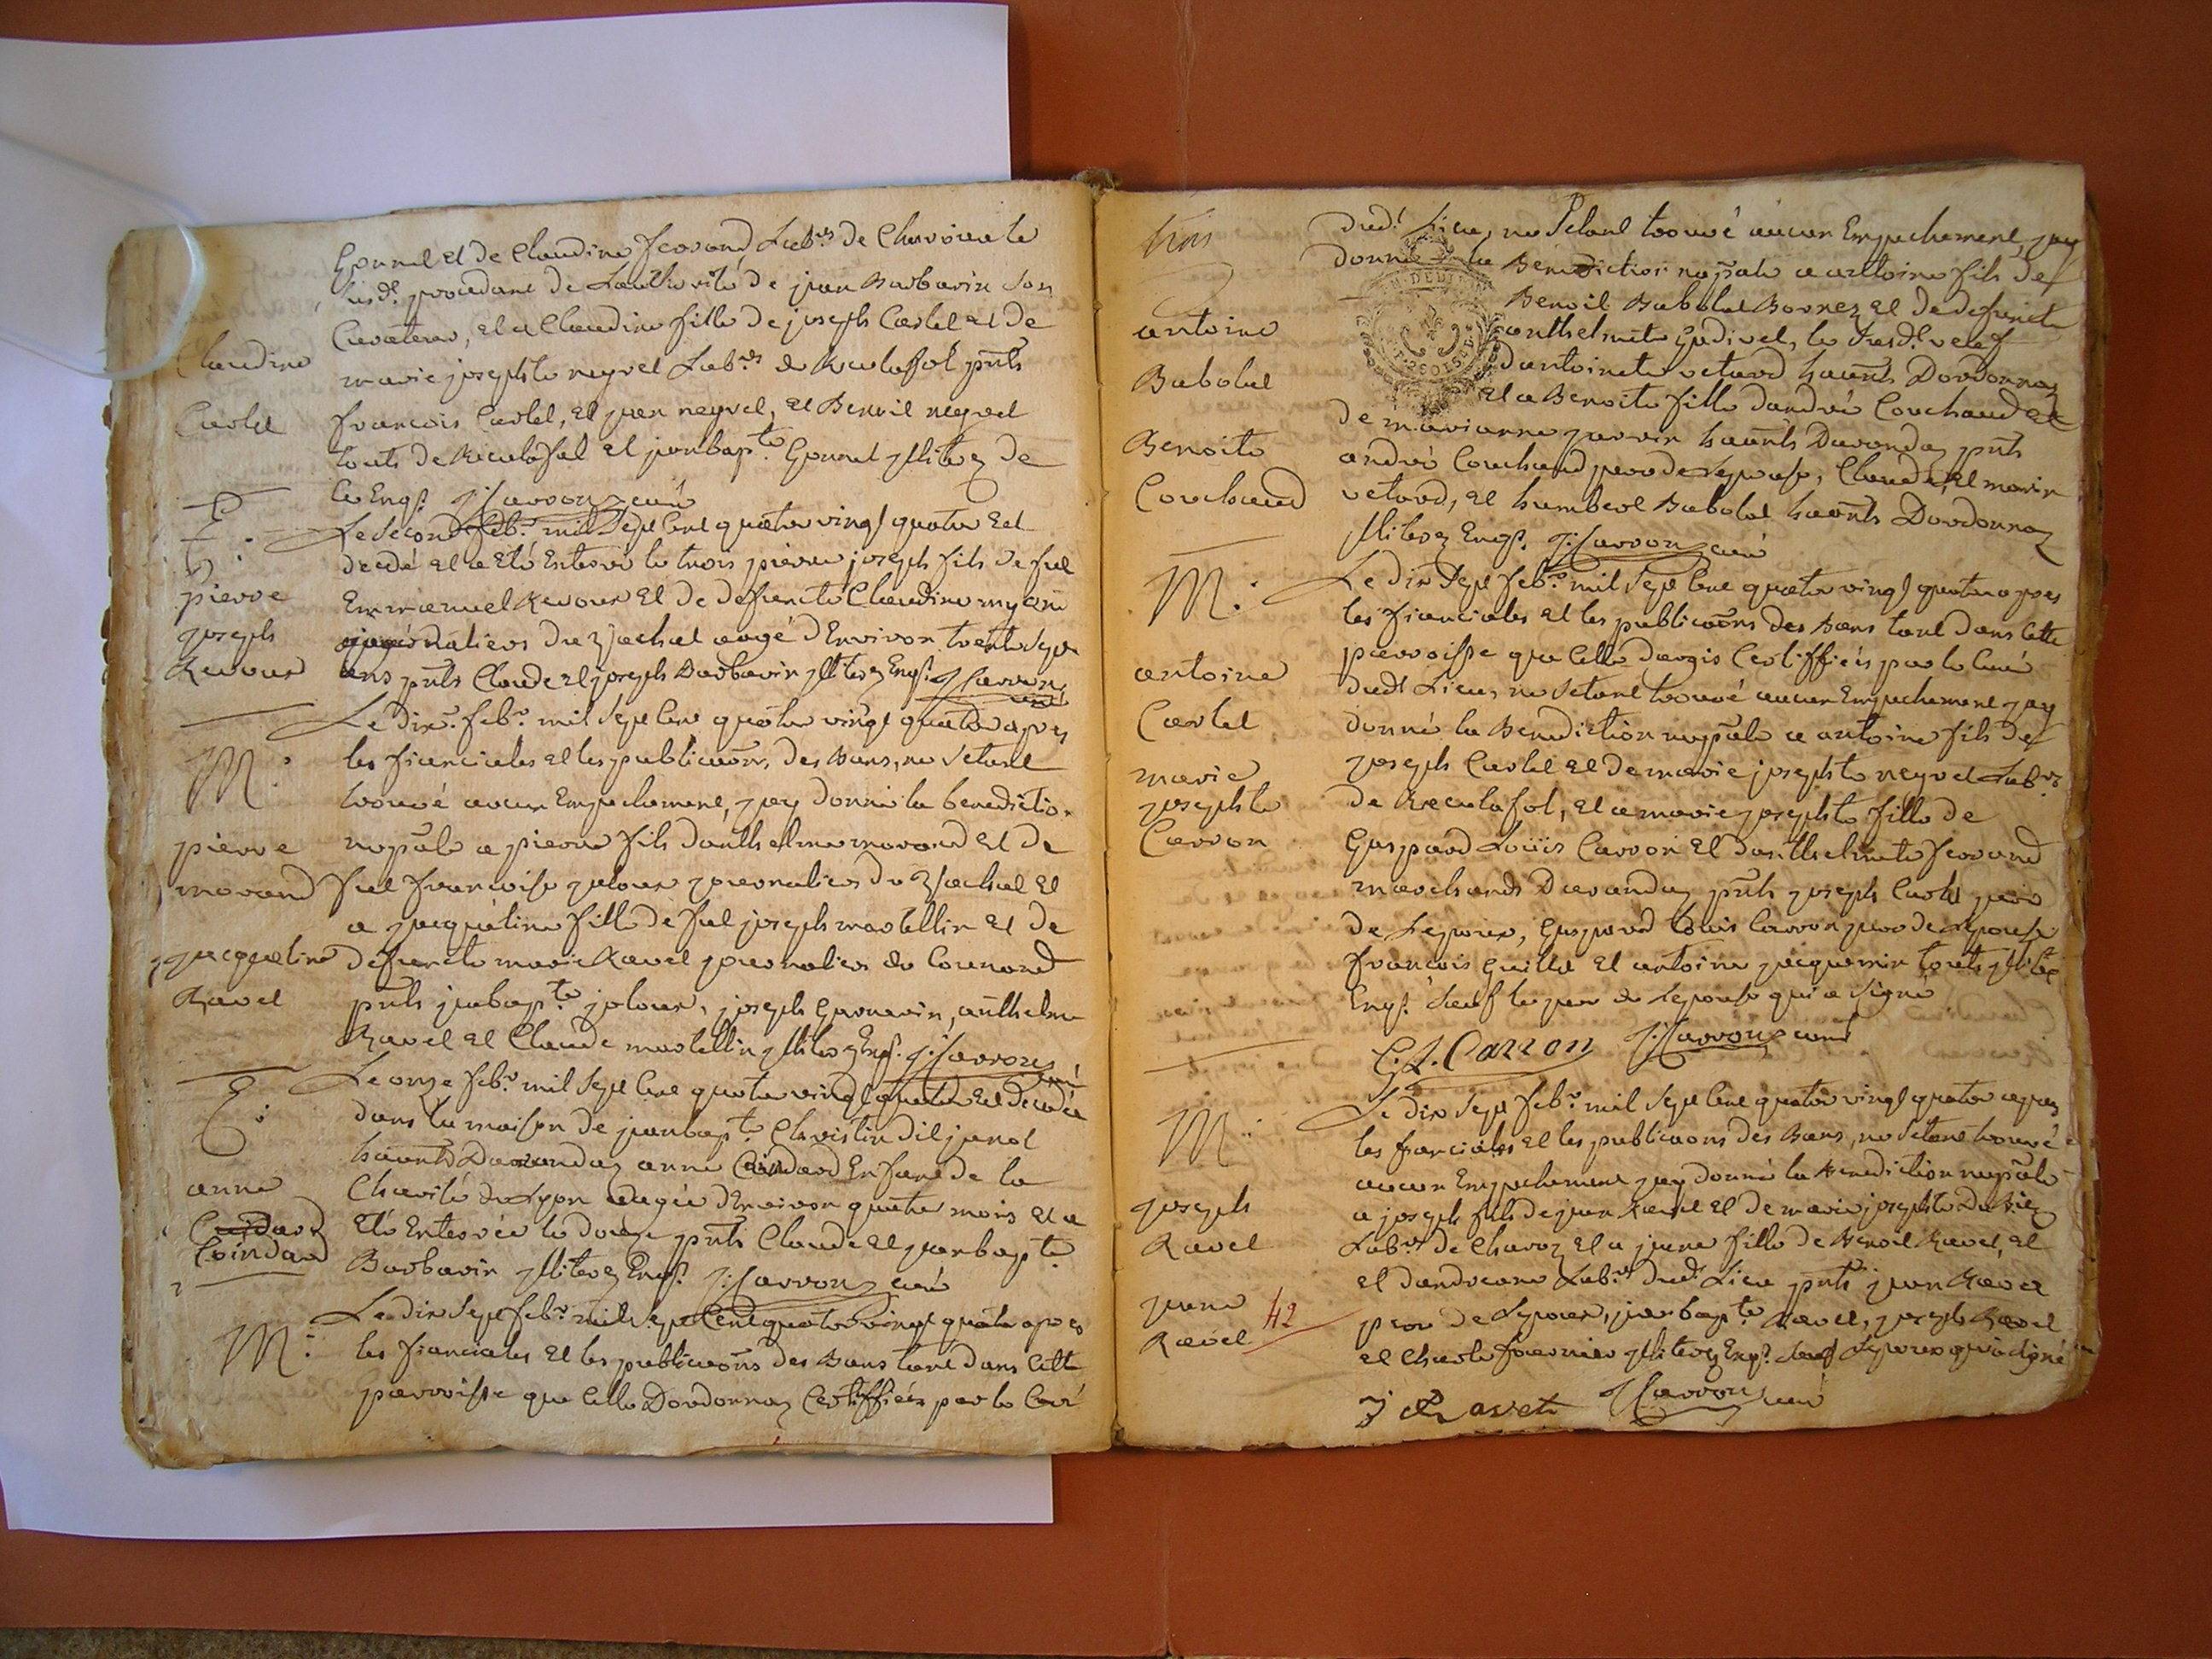 Gonnet et de Claudine ferrand Labrs de Chavoux le
susdt. procedant de Lauthorité de jean Barbarin son
Curateur, et a Claudine fille de joseph Carlet et de
marie josephte neyret Labrs de Reculafol pnts
francois Carlet, et jean neyret, et Benoit neyret
touts de Reculafol et jeanbapte. Gonnet jlliterez de
ce Enqs. J: Carron curé
Claudine
Carlet
E
t:
pierre
joseph
Revoux
Le second febr. mil Sept Cent quatre vingt quatre Est
decédé et a Eté Enterré le trois pierre joseph fils de fut
Emmanuel Revoux Et de defuncte Claudine
journaliers aagé dEnviron trente sept
ans pnts Claude et joseph Barbarin jlliterez Enqs. J Carron
curé
M:
pierre
morand
jacqueline
Ravet
Le dix. febr. mil Sept Cent quatre vingt quatre apres
les fianciales et les publicaons des Bans, ne setant
trouvé aucun Empechement, jay donné la benediction
nuptiale a pierre fils danthelme morand et de
fut francoise jeloux journaliers et
a jacqueline fille de fut joseph martellin et de
defuncte marie Ravet journaliers de Counand
pnts jeabapte. joloux, joseph Guronevin, anthelme
Ravet et Claude martellin jlliterez Enqs. J: Carron
curé
E:
anne
Coindard
Le onze febr. mil Sept Cent quatre vingt quatre Est decedée
dans la maison de jeanbapte. Christin dit janot
haants Davanda anne Coindard Enfant de la
Charité de Lyon aagée dEnviron quatre mois et a
Eté Enterrée le douze pnts Claude et jeanbapte
Barbarin jlliterez Enqs. J: Carron curé
M:
Le dix Sept febr. mil Sept Cent quatre vingt quatre apres
les fianciales Et les publicaons des Bans tant dans Cette
parroisse que Celle Dordonnaz Certiffiées par le Curé
trois
antoine
Babolat
Benoite
Couchaud
dudt. Lieu, ne setant trouvé aucun Empechement, jay
donné la Benediction nuptiale a antoine fils de
Benoit Babolat Bornez et de defuncte
anthelmete Gudivet, le susdt. veuf
dantoinete vetard haants Dordonnaz
et a Benoite fille dandré Couchaud et
de marianne haants Davanda pnts
andré Couchaud pere de Lepouse, Claude, et marin
vetard, et humbert Babolat haants Dordonnaz
jlliterez Enqs. J: Carron curé
M:
antoine
Carlet
marie
josephte
Carron
Le dix Sept febr. mil Sept Cent quatre vingt quatre apres
les fianciales et les publicaons des Bans tant dans Cette
parroisse que Celle dargis Certiffiées par le Curé
dudt Lieu, ne setant trouvé aucun Empechement jay
donné la Benediction nuptiale a antoine fils de
joseph Carlet et de marie josephte neyret Labrs
de Reculafol, et a marie josephte fille de
Gaspard Loüis Carron et danthelmete ferrand
marchands Davanda pnts joseph Carlet pere
de Lepoux, Gaspard Loüis Carron pere de Lepouse
francois Guillet et antoine jacquemin touts jlliterez
Enqs. sauf le pere de Lepouse qui a signé
G. L. Carron J: Carron curé
M:
joseph
Ravet
jeane
Ravet
42
Le dix Sept febr. mil Sept Cent quatre vingt quatre apres
les fianciales et les publicaons des Bans, ne setant trouvé
aucun Empechement jay donné la Benediction nuptiale
a joseph fils de jean Ravet et de marie josephte
Labrs de Charoz et a jeane fille de Benoit Ravet, et
et Labrs dudt. Lieu pnts jean Ravet
pere de Lepoux, jeanbapte. Ravet, joseph Ravet
et Charle fournier jlliterez Enqs. sauf Lepoux qui a signé
J Ravet J Carron curé